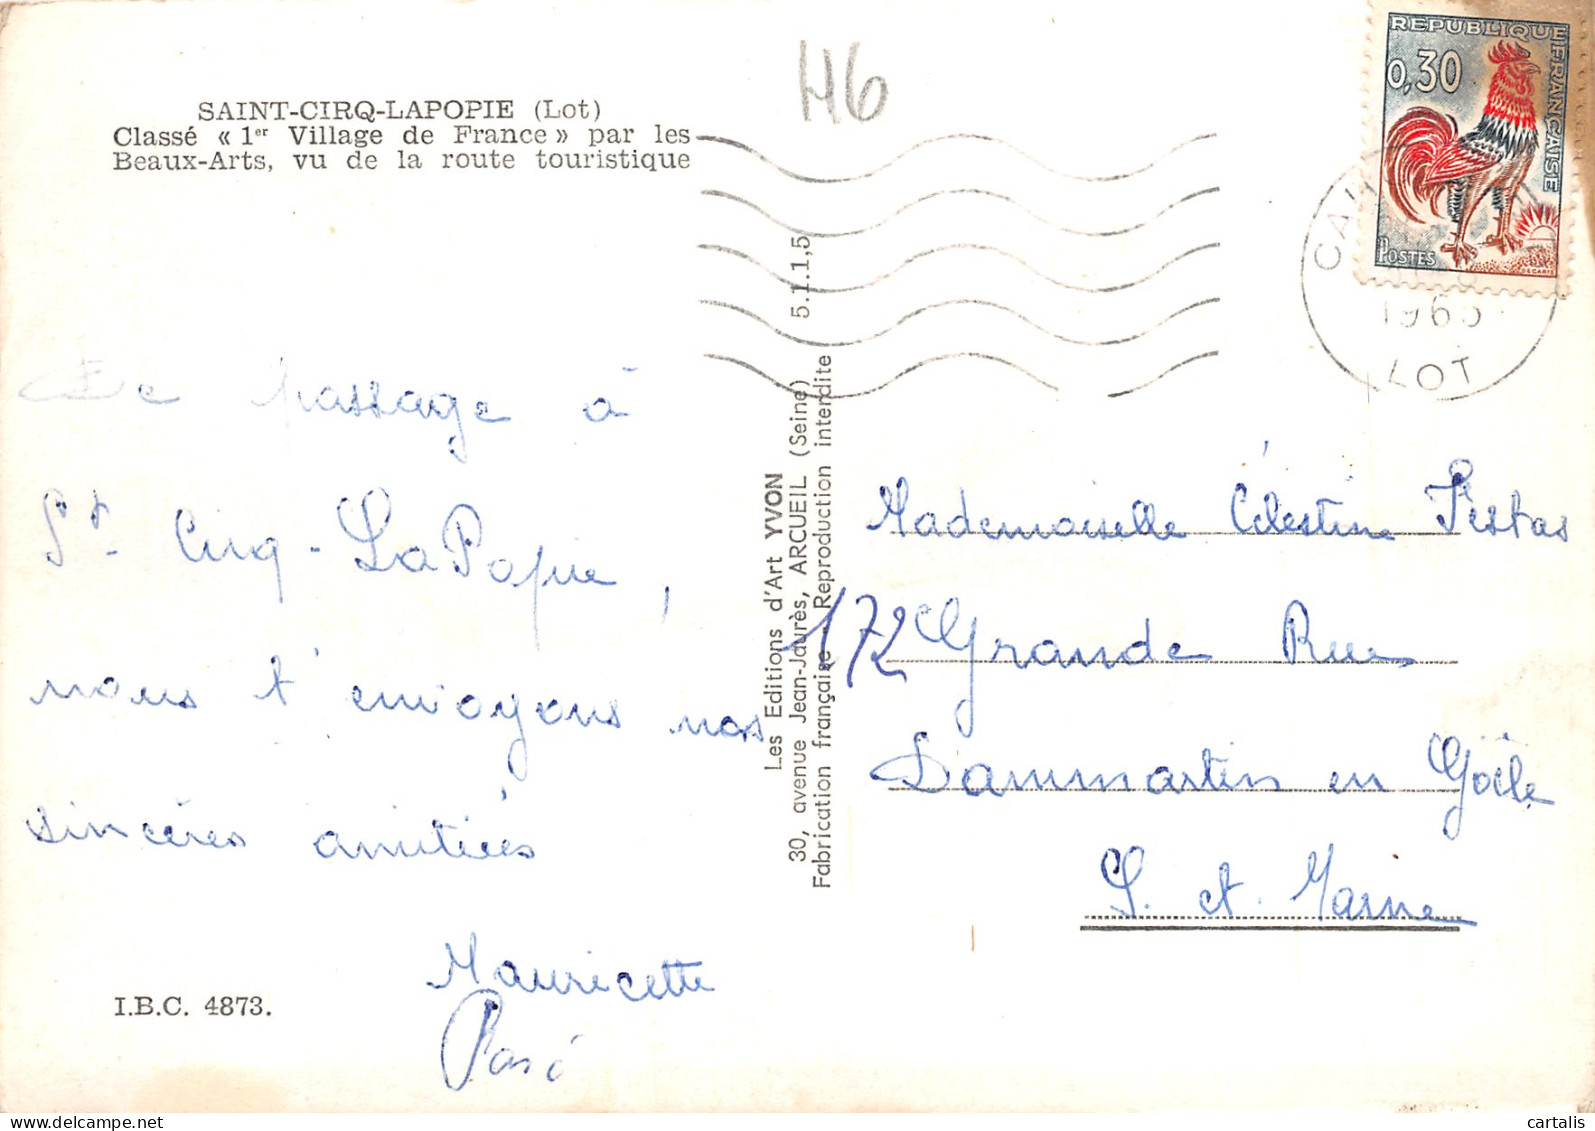 SAINT-CIRQ-LAPOPIE (Lot)
Classé « 1er Village de France » par les
Beaux-Arts, vu de la route touristique
H6
REPUBLIQUE FRANÇAISE
0,30
POSTES
DECARIS
1965
LOT
De passage à
St. Cirq-LaPopie,
nous t'envoyons nos
sincères amitiés
Mauricette
I.B.C. 4873.
Les Editions d'Art YVON
30, avenue Jean-Jaurès, ARCUEIL (Seine) 5.1.1,5
Fabrication française - Reproduction interdite
Mademoiselle Célestine Pestas
172 Grande Rue
Dammartin en Goële
S. et. Marne
cartalis